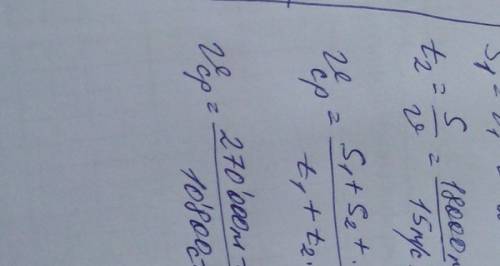 S₁ = υ₁
t₂ = S/υ = 18000м/15м/с
υср = S₁ + S₂ +/t₁ + t₂
υср = 270'000м/10800с